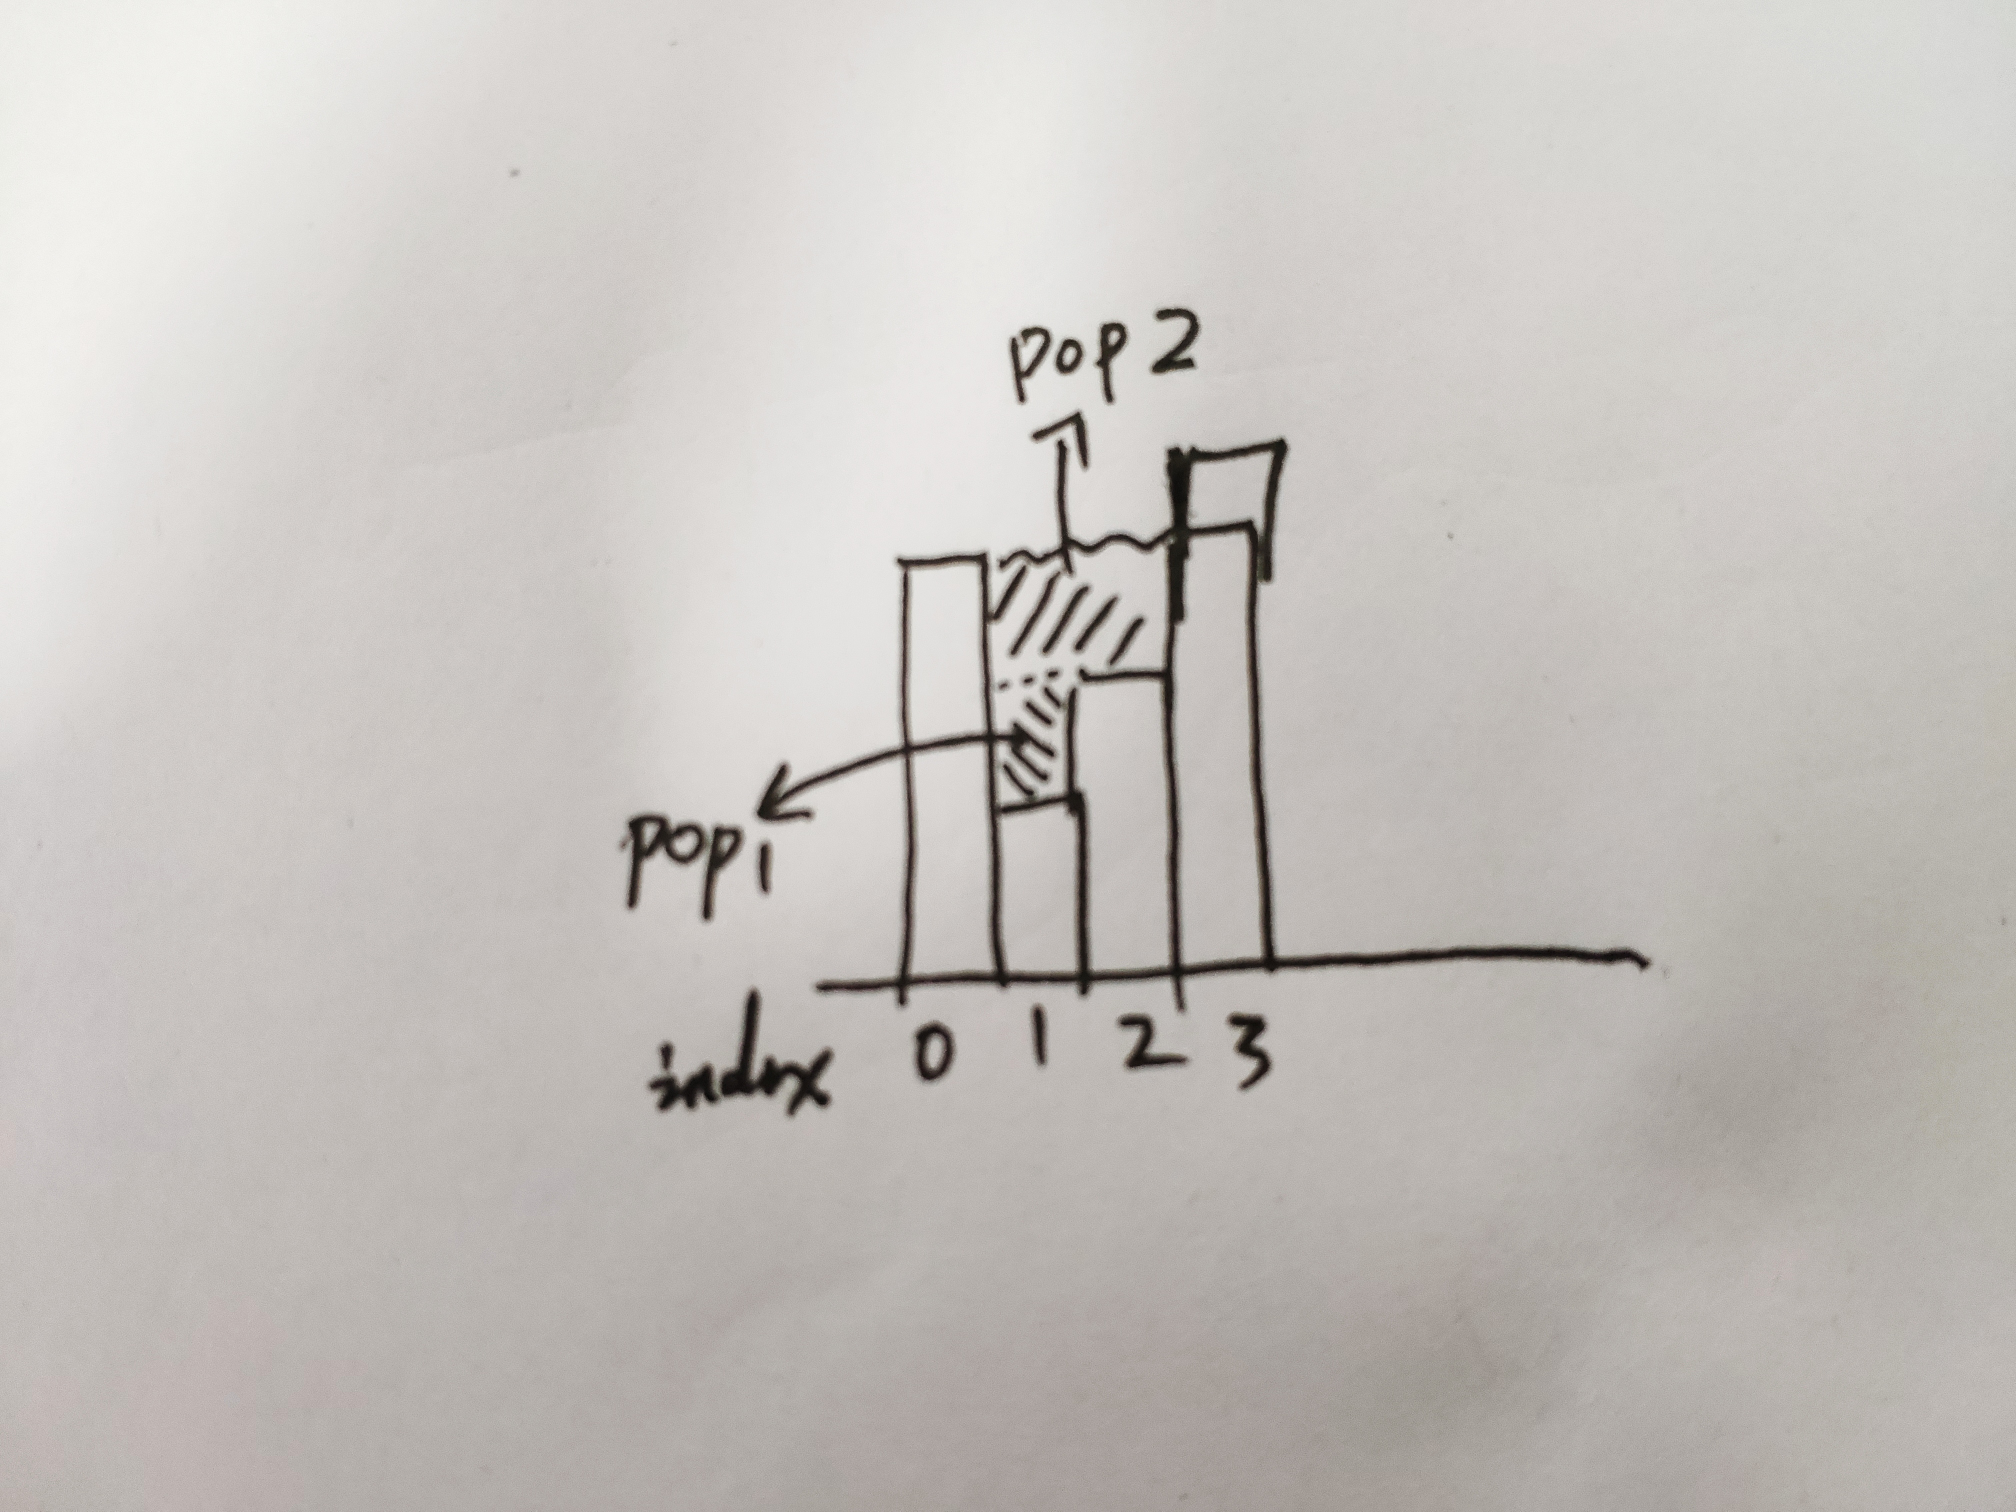 pop 2
pop1
index 0 1 2 3